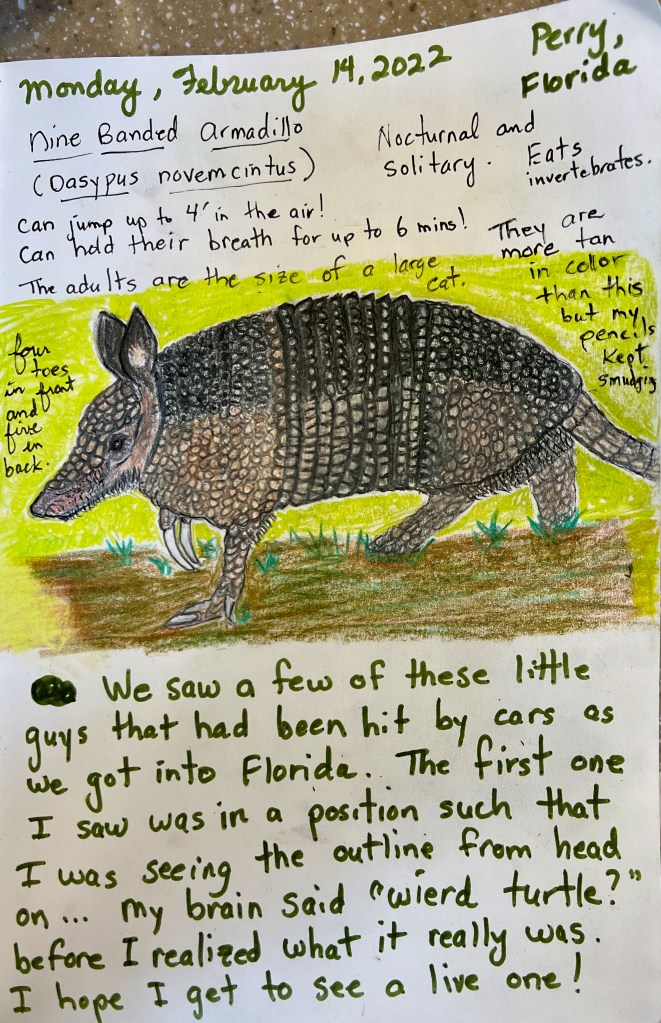 Monday, February 14, 2022
Perry,
Florida
Nine Banded Armadillo
(Dasypus novemcintus)
Nocturnal and
solitary.
Eats
invertebrates.
can jump up to 4' in the air!
Can hold their breath for up to 6 mins!
The adults are the size of a large
cat.
They are
more tan
in color
than this
but my
pencils
kept
smudging
four
toes
in front
and
five
in
back.
We saw a few of these little
guys that had been hit by cars as
we got into Florida. The first one
I saw was in a position such that
I was seeing the outline from head
on... my brain said "wierd turtle?"
before I realized what it really was.
I hope I get to see a live one!